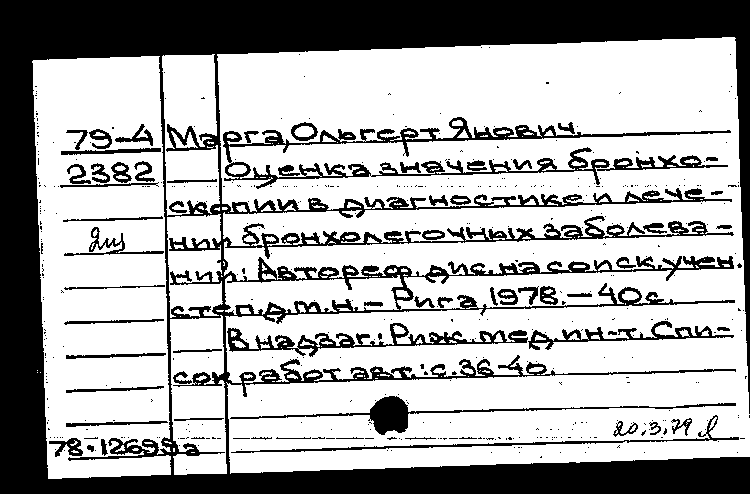 79-4 Марга, Ольгерт Янович.
2382 Оценка значения бронхо-
скопии в диагностике и лече-
2из нии бронхолегочных заболева-
ний: Автореф. дис. на соиск. учен.
степ. д.м.н. - Рига, 1978. - 40с.
В надзаг.: Риж. мед. ин-т. Спи-
сок работ авт.: с. 36-40.
20.3.79
78-12699а